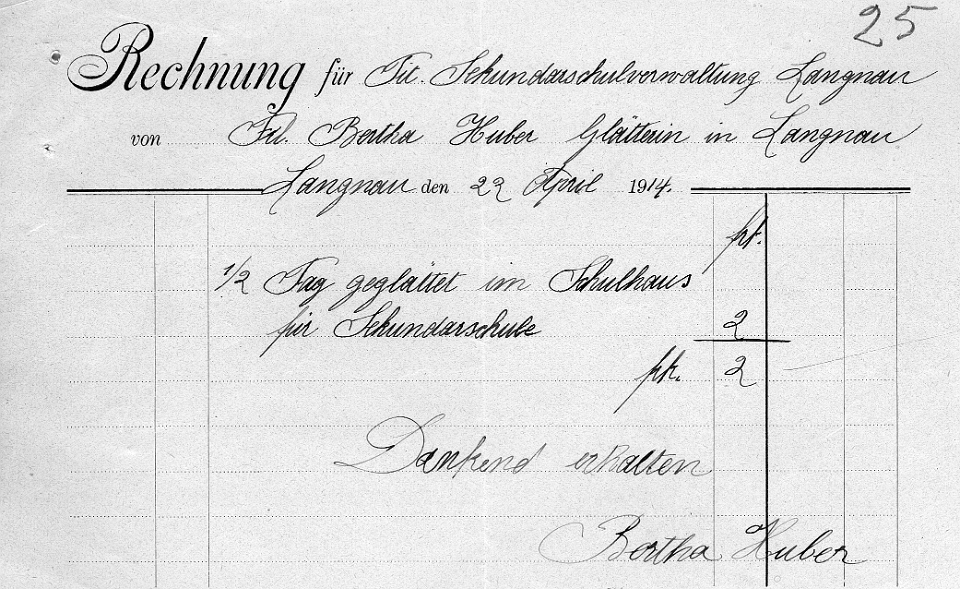 25
Rechnung für Tit. Sekundarschulverwaltung Langnau
von Frl. Bertha Huber Glätterin in Langnau
Langnau den 22 April 1914.
frk.
1/2 Tag geglättet im Schulhaus
für Sekundarschule 2
frk. 2
Dankend erhalten
Bertha Huber